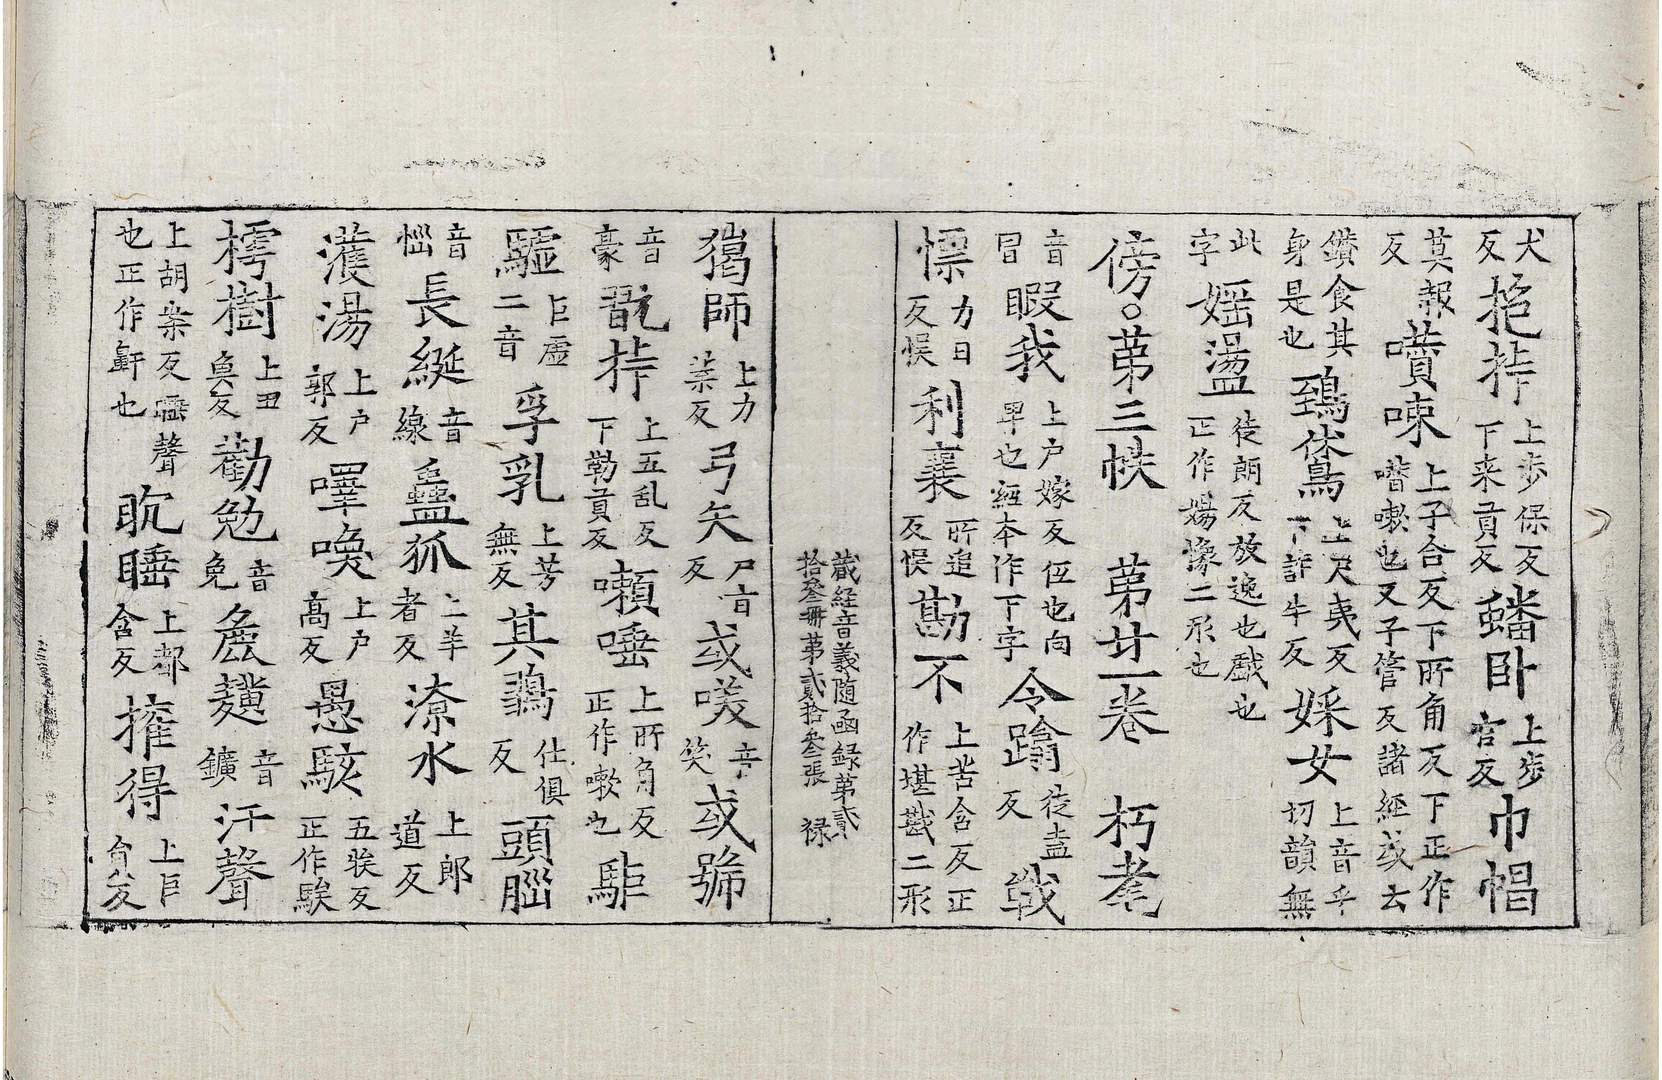 犬反抱㧳上步保反下来貢反蟠卧上步官反巾帽
莫報反噆㖩上子合反下所角反下正作噆嗽也又子管反諸經或云
鑚食其身是也鵄鵂上尺夷反下許牛反婇女上音乎切韻無
此字婬盪徒朗反放逸也戲也正作婸愓二形也
傍。苐三帙　苐廿一卷　朽耄
音冒暇我上户嫁反伍也向早也經本作下字令蹹徒盍反戦
慓力日反悮利襄所追反悮勘不上苦含反正作堪戡二形
蔵経音義随函録苐貳拾叄冊苐貳拾叄張　禄
猲師上力業反弓矢尸旨反或㗛音笑或號
音豪翫㧳上五乱反下勒貢反嗽唾上所角反正作嗽也駏
驉巨虛二音孚乳上芳無反其鶵仕俱反頭腦
音惱長綖音線蠱狐上羊者反潦水上郎道反
濩湯上户郭反嘷喚上户高反愚騃五騃反正作騃
樗樹上丑魚反勸勉音免麁䵃音鑛汗聲
上胡案反噁聲也正作鼾也耽睡上都含反擁得上巨月反